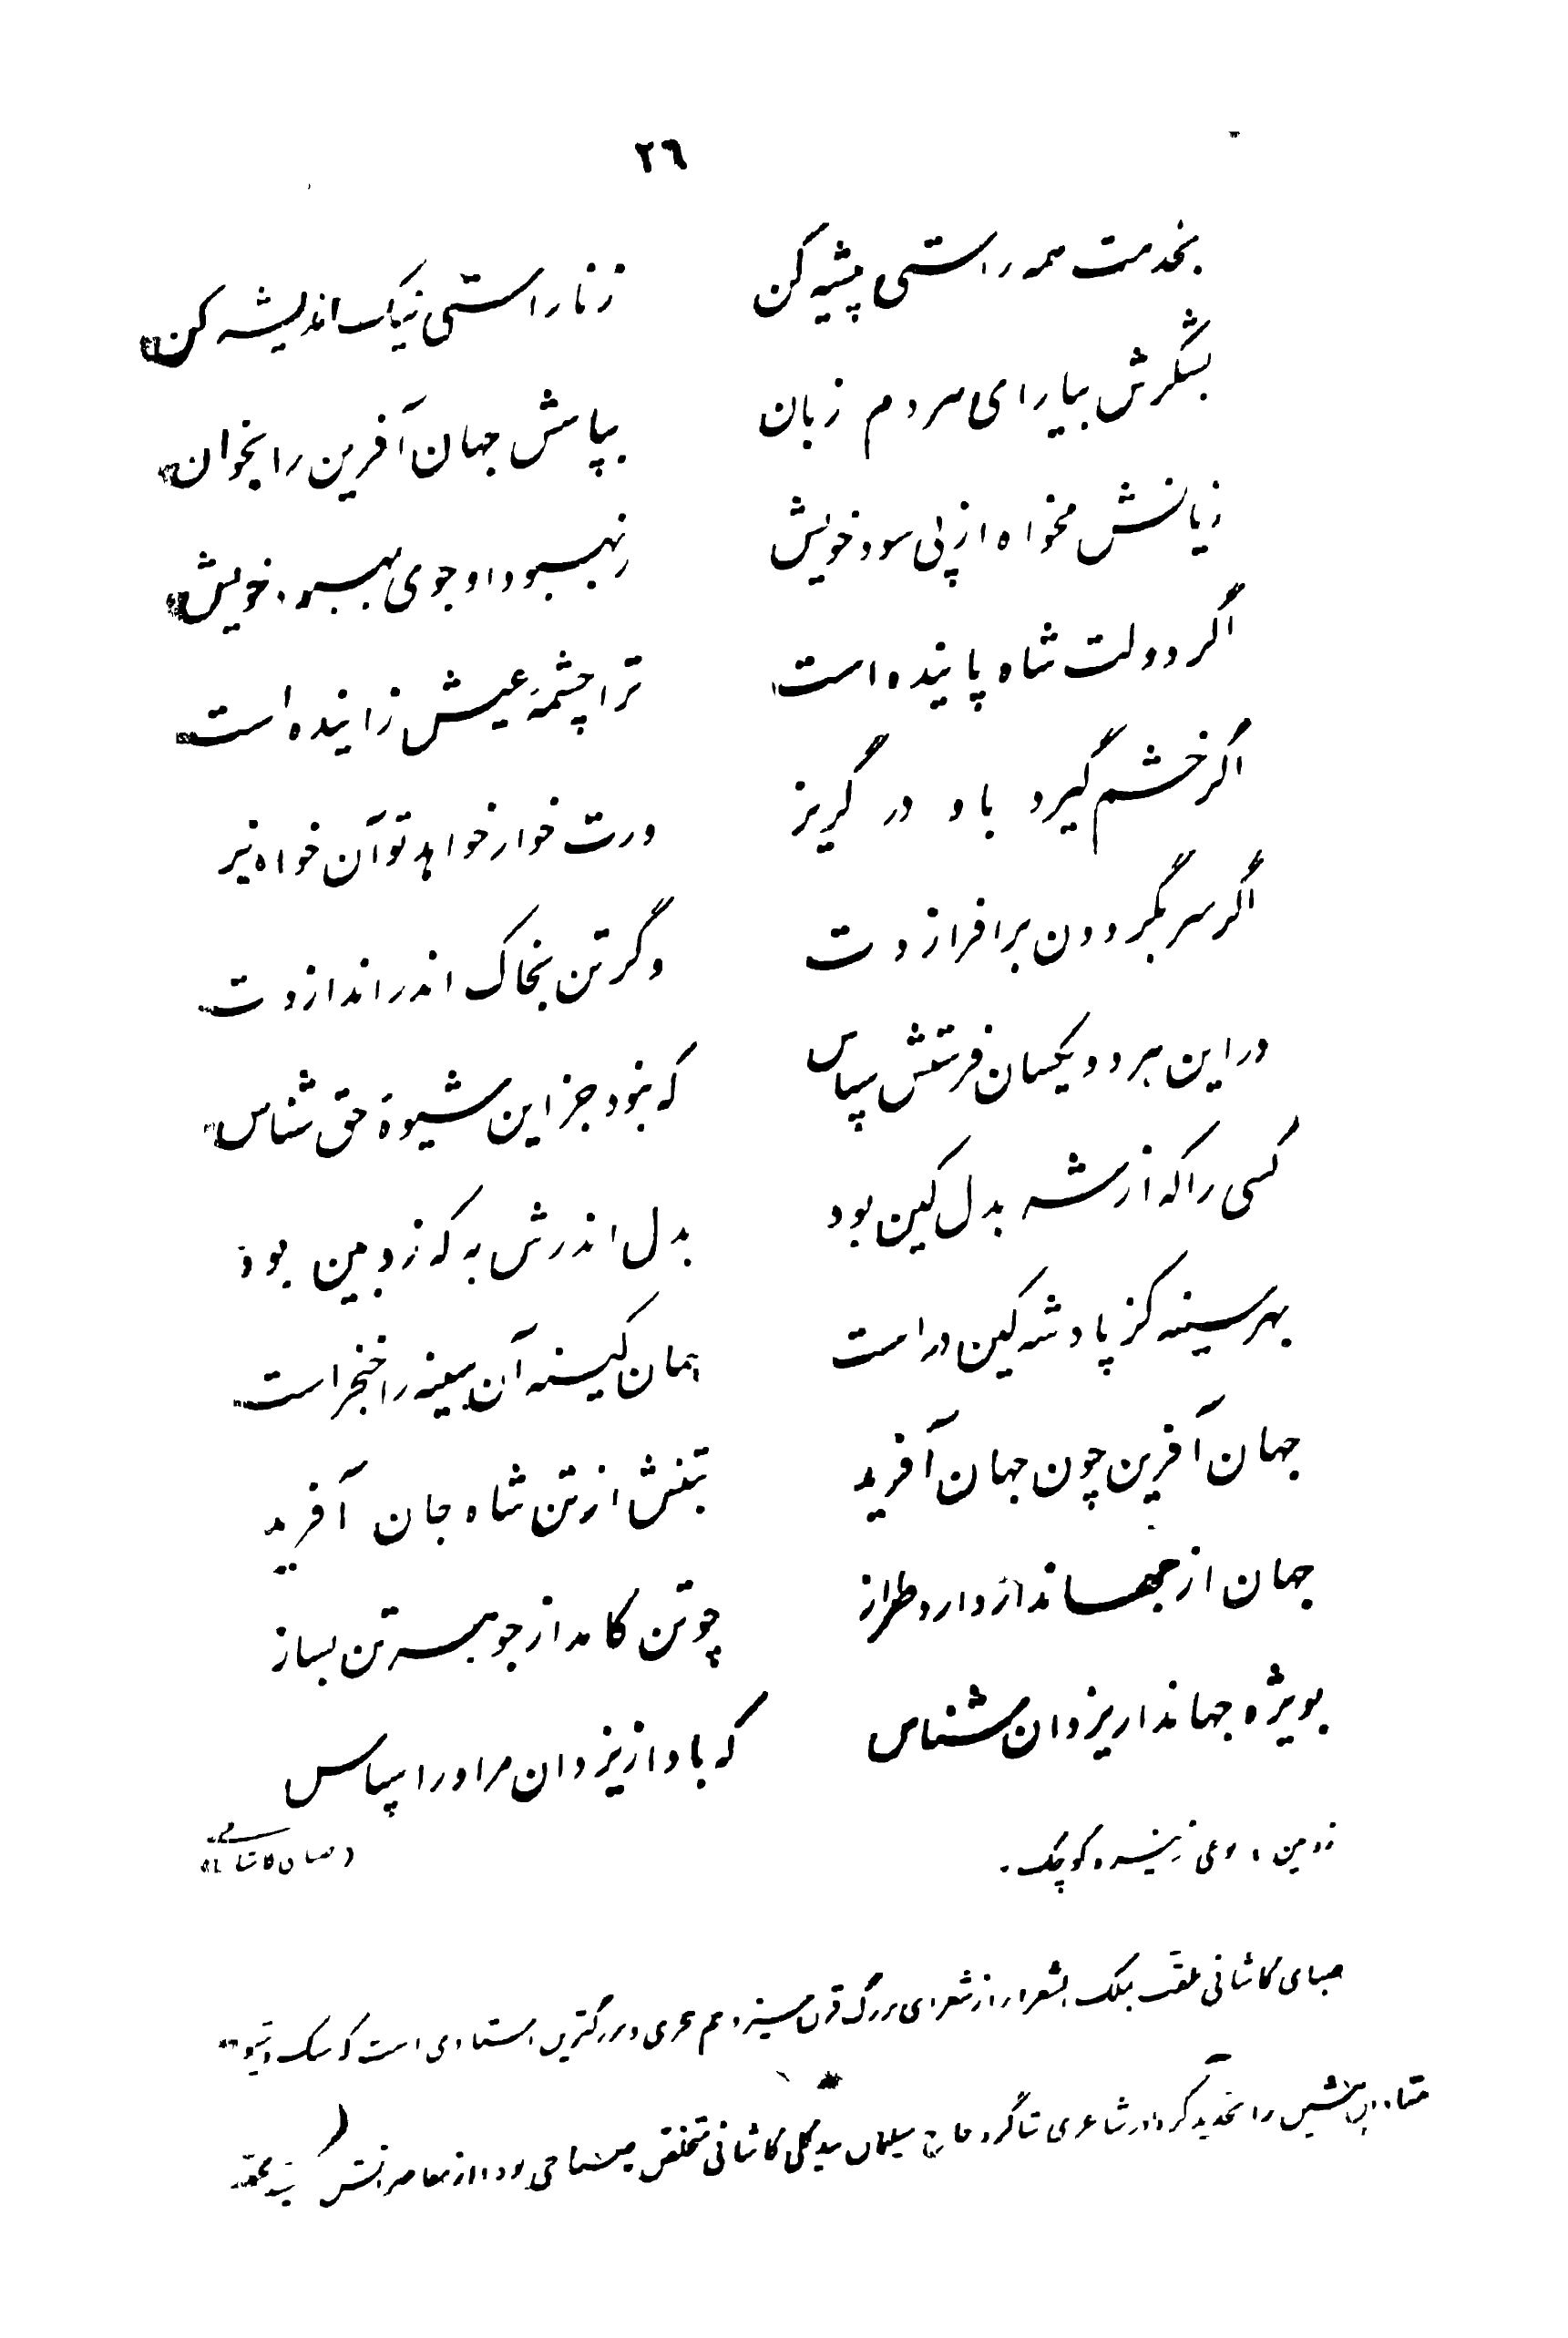 ٢٦
بخدمت همه راستی پیشه کن زناراستی نیک اندیشه کن
بشکرش بیارای مردم زبان بپاسش جهان آفرین را بخوان
زیانش مخواه از پی سود خویش زبهبود او جوی بهبود خویش
اگر دولت شاه پاینده است ترا چشمهٔ عیش زاینده است
اگر خشم گیرد باو در گریز ورت خوار خواهد تو آن خواه نیز
اگر سر بگردون برافرازدت وگر تن بخاک اندر اندازدت
در این هر دو یکسان فرستش سپاس که نبود جز این شیوهٔ حق شناس
کسی را که از شه بدل کین بود بدل اندرش به که زوبین بود
بهر سینه کز پادشه کین در است همان کینه آن سینه را خنجر است
جهان آفرین چون جهان آفرید تنش از تن شاه جان آفرید
جهان از جهاندار دارد طراز چو تن کامد از جوهر تن بساز
بویژه جهاندار یزدان شناس که باد از یزدان مر او را سپاس
زوبین، نوعی نیزه کوچک.
صبای کاشانی ملقب بملک الشعراء از شعرای بزرگ قرن سیزدهم هجری و بزرگترین استادی است که سبک و شیوه
متقدمین را تجدید کرد در شاعری شاگرد حاج سلیمان بیدگلی کاشانی متخلص بصباحی بود و از معاصرانش